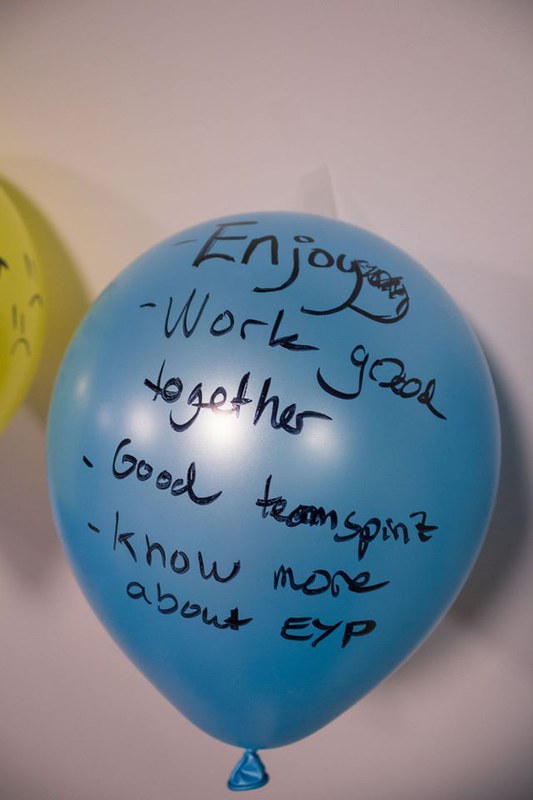 - Enjoy
- Work good
together
- Good teamspirit
- know more
about EYP